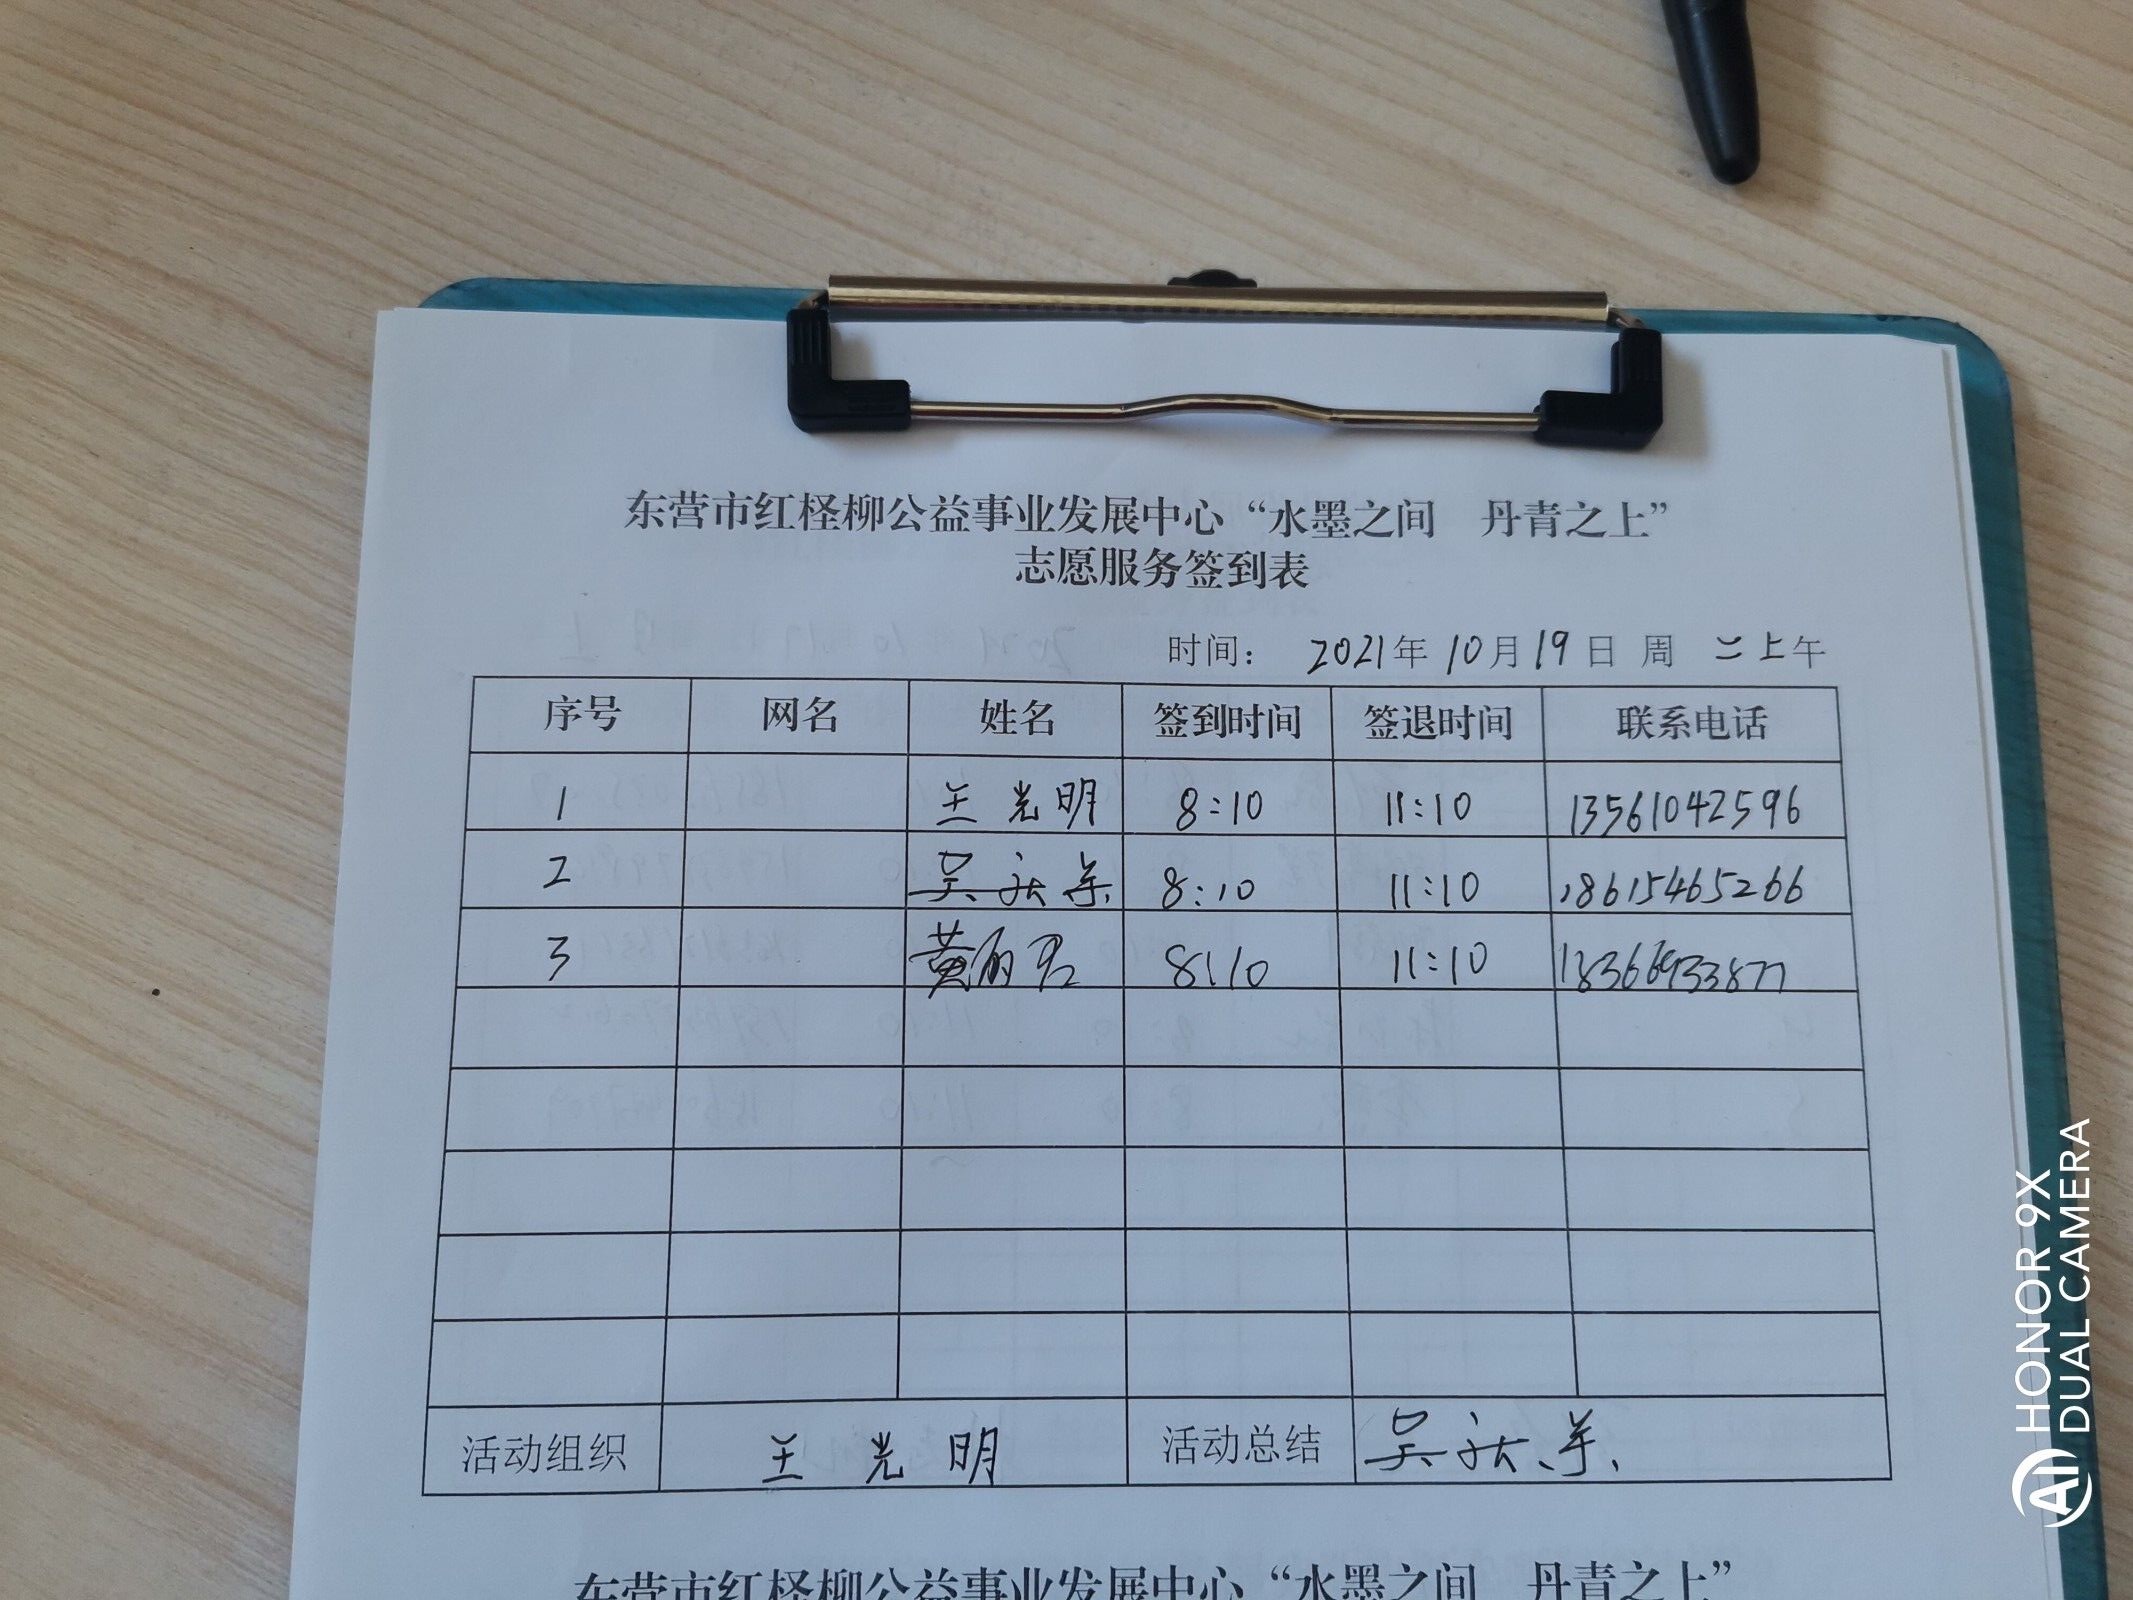 东营市红柽柳公益事业发展中心“水墨之间 丹青之上”
志愿服务签到表
时间: 2021年10月19日 周 二上午
序号 网名 姓名 签到时间 签退时间 联系电话
1 王光明 8:10 11:10 13561042596
2 吴 8:10 11:10 18615465266
3 黄丽君 8:10 11:10 18366933877
活动组织 王光明 活动总结 吴
东营市红柽柳公益事业发展中心“水墨之间 丹青之上”
HONOR 9X
AI DUAL CAMERA